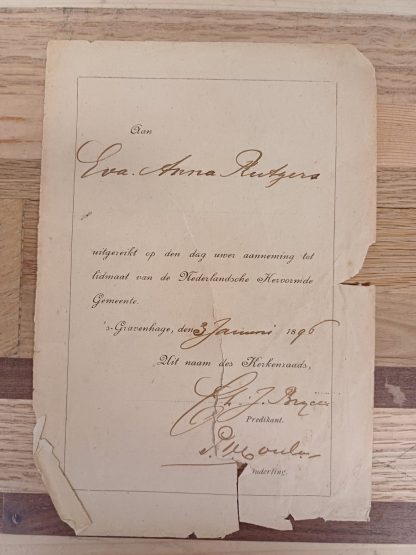 Aan
Eva. Anna Rutgers
uitgereikt op den dag uwer aanneming tot
lidmaat van de Nederlandsche Hervormde
Gemeente.
's-Gravenhage, den 3 Januari 1896
Uit naam des Kerkenraads,
Predikant.
uderling.